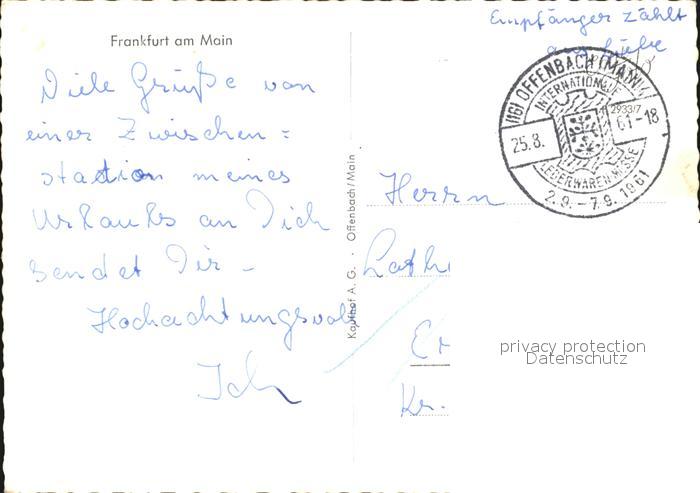 Frankfurt am Main
Viele Grüße von
einer Zwischen=
station meines
Urlaubs an Dich
sendet Dir –
Hochachtungsvoll
Ich
Kaufhof A. G. · Offenbach/Main
Empfänger zahlt
aus Liebe
(16) OFFENBACH (MAIN) 1
INTERNATIONALE
25.8.
61-18
LEDERWAREN-MESSE
2.9.–7.9.1961
2933/7
Herrn
Loth
Er
Kr.
privacy protection
Datenschutz